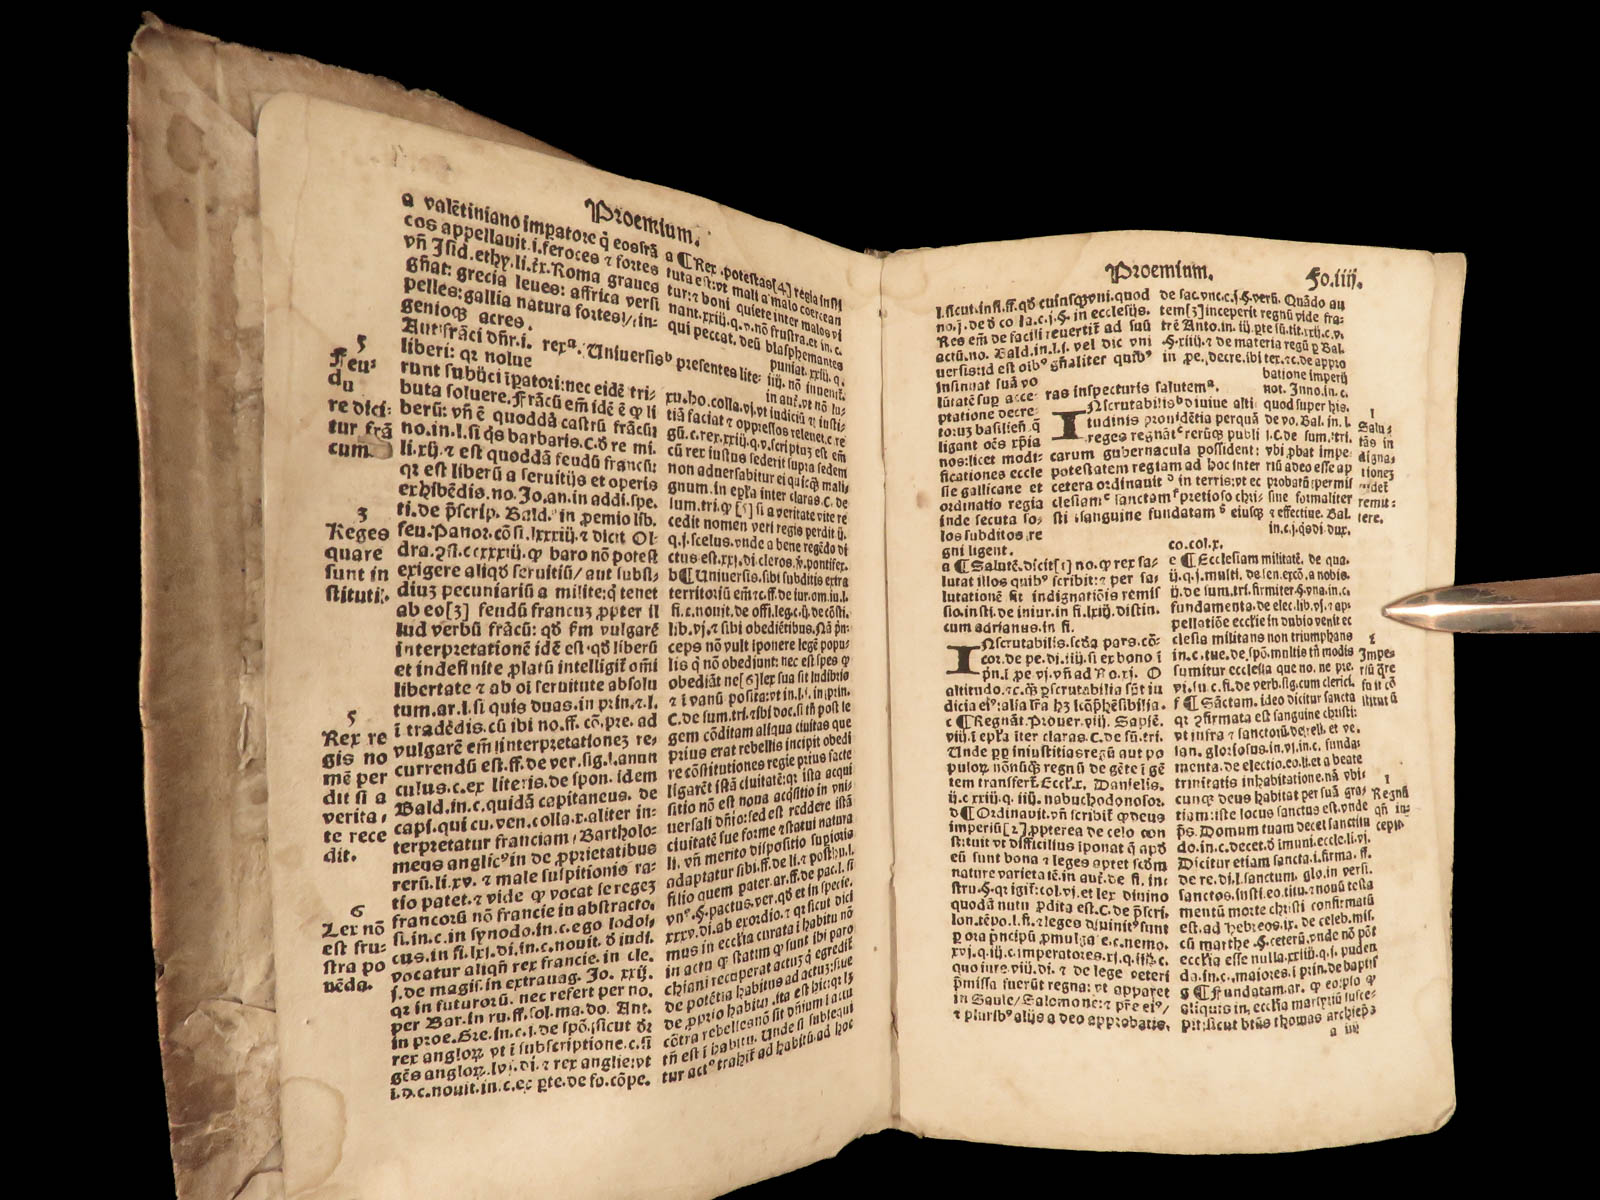 Proemium.
a valētiniano impatore q̄ eosfrā
cos appellauit.i.feroces ⁊ fortes
vn̄ Isid.ethy.li.ix. Roma graues
gn̄at: grecia leues: affrica versi
pelles: gallia natura fortes/, in-
genioq; acres.
Aut frāci dn̄r.i.
liberi: qr nolue
rexᵃ. Uniuersisᵇ presentes lite-
runt subijci īpatori: nec eidē tri-
buta soluere. Frācū em̄ idē ē qͥ li
berū: vn̄ ē quoddā castrū frācū
no.in.l.si qͥs barbaris.c.ō re mi.
li.xij. ⁊ est quoddā feudū francū:
qr est liberū a seruitijs et operis
exhibēdis.no. Jo.an.in addi.spe.
ti.de p̄scrip. Bald. in proemio lib.
feu. Panor. cōsi.lxxxiij. ⁊ dicit Ol-
dra. baro nō potest
exigere aliqō seruitiū/ aut subsi-
diuz pecuniariū a milite: q̄ tenet
ab eo[3] feudū francuz propter il
lud verbū frācū: qō fm vulgarē
interpretationē idē est. qō liberū
et indefinite platū intelligit omī
libertate ⁊ ab oī seruitute absolu
tum.ar.l.si quis duas.in prin. ⁊.l.
ī tradēdis.cū ibi no.ff.cō.pre. ad
vulgarē em̄ interpretationez re-
currendū est.ff.de ver.sig.l.anun
culus.c.ex literis.de spon. idem
Bald.in.c.quidā capitaneus. de
capi.qui cu.ven.colla.x.aliter in-
terpretatur franciam / Bartholo-
meus anglicꝰ in de proprietatibus
rerū.li.xv. ⁊ male suspitionis ra-
tio patet. ⁊ vide qͣ vocat se regez
francorū nō francie in abstracto.
si.in.c.in synodo.in.c.ego lodoi.
cus.in fi.lxj.di.in.c.nouit.ō iudi.
vocatur aliqn̄ rex francie. in cle.
j.de magis.in extrauag. Jo. xxij.
qr in futurorū. nec refert per no.
per Bar.in ru.ff.sol.ma.do. Ant.
in proe.Gre.in.c.j.de spō.sicut dr̄
rex anglorꝝ vt ī subscriptione.c.si
gēs anglorꝝ.lvj.di. ⁊ rex anglie: vt
j.d.c.nouit.in.c.ex pte.de fo.cōpe.
5
Feu-
du
re dici-
tur frā
cum.
3
Reges
quare
sunt in
stituti.
5
Rex re
gis no
mē per
dit si a
verita-
te rece
dit.
6
Lex nō
est fru-
stra po
nēda.
a ¶ Rex .potestas[4] regia insti
tuta est: vt mali a malo coercean
tur: ⁊ boni quiete inter malos vi
nant.xxiij.q.v.nō frustra.et in.c.
qui peccat. deū blasphemantes
puniat.xxiij.q.
iiij. nō inuenit.
in aut.vt nō lu-
xu.ho.colla.vj.vt iudiciū ⁊ iusti-
tiā faciat ⁊ oppressos releuet.c.re
gū.c.rex.xxiij.q.v.scriptuz est em̄
cū rex iustus sederit supra sedem
non aduersabitur ei quicqͣ mali-
gnum.in epl'a inter claras.C.de
sum.tri.qͣ [5] si a veritate vite re
cedit nomen veri regis perdit ij.
q.j.scelus.vnde a bene regēdo di
ctus est.xxj.di.cleros.
b¶ Uniuersis.sibi subditis extra
territoriū em̄.c.ff.de iur.om.iu.l.
fi.c.nouit.de offi.leg.c.ij.de cōsti.
lib.vj. ⁊ sibi obediētibus. Nā prin-
ceps nō vult iponere legē popu-
lis q̄ nō obediunt: nec est spes qͣ
obediāt ne[6] lex sua sit ludibrio
⁊ ī vanū posita: vt in.l.j.in prin.
C.de sum.tri. ⁊ ibi doc.si tn̄ post le
gem cōditam aliqua ciuitas que
prius erat rebellis incipit obedi
re cōstitutiones regie prius facte
ligarēt istā ciuitatē: qr ista acqui
sitio nō est noua acqsitio in vni-
uersali dn̄io: sed est reddere istā
ciuitatē sue forme ⁊ statui natura
li. vn̄ merito dispositio superioris
adaptatur sibi.ff.de li. ⁊ posthu.l.
filio quem pater.ar.ff.de pac.l.si
vnꝰ.§.pactus.ver.qō et in specie.
xxxv.di.ab exordio. ⁊ qr sicut dici
mus in ecclia curata ī habitu nō
in actu qͣ statim qͣ sunt ibi paro
chiani recuperat actuz q̄ egredit
de potētia habitus ad actuz: siue
de proprio habitu .ita est hic: qr lz
cōtra rebelles nō sit dn̄ium ī actu
tn̄ est ī habitu. Unde si subsequi
tur actꝰ trahit ad habitū.ad hoc
Proemium. Fo.iiij.
l.sicut.in fi.ff.qō cuiusqͣ vni.quod
no.j.de ō co la.c.j.§.in ecclesijs.
Res em̄ de facili reuertit ad suū
actū.no. Bald.in.l.j. vel dic vni
uersis: id est oībꝰ gn̄aliter quibꝰ
insinuat suā vo
lūtatē sup acce-
ptatione decre-
toruz basilien̄.q̄
ligant oēs xpia
nos: licet modi-
ficationes eccle
sie gallicane et
ordinatio regia
inde secuta so-
los subditos re
gni ligent.
ras inspecturis salutemᵃ.
INscrutabilisᵇ diuine alti-
tudinis prouidētia perquā
reges regnātᶜ rerūqͣ publi
carum gubernacula possident:
potestatem regiam ad hoc inter
cetera ordinauitᵈ in terris: vt ec
clesiamᵉ sanctamᶠ pretioso chri-
sti sanguine fundatamᵍ eiusqͣ
a ¶ Salutē.dicit[1] no. qͣ rex sa-
lutat illos quibꝰ scribit: ⁊ per sa-
lutationē fit indignatiōis remis
sio.insti.de iniur.in fi.lxiij.distin.
cum adrianus.in fi.
INscrutabilis.scda pars.cō-
cor.de pe.di.iiij.si ex bono ī
prin.ī pe vj.vn̄ ad Ro.xj. O
altitudo. ⁊c.qͣ pscrutabilia sūt iu
dicia eiꝰ: alia lr̄a hz icōphēsibilia.
c ¶ Regnāt.Prouer.viij. Sapiē.
viij.ī epl'a iter claras.C.de sū.tri.
Unde ppt iniustitias regū aut po
pulorꝝ nōnūqͣ regnū de gēte ī gē
tem transfert. Eccl'.x. Danielis.
ij.c xxiij.q. iiij. nabuchodonosor.
d ¶ Ordinauit.vn̄ scribit qͣ deus
imperiū[2] propterea de celo con
stituit vt difficilius iponat q̄ apō
eū sunt bona ⁊ leges aptet scdm
nature varietatē.in aut.de fi. ini
stru.§.qr igit: col.vj. et lex diuino
quodā nutu pdita est.C.de p̄scri.
lon.tēpo.l.fi. ⁊ leges diuinitꝰ sunt
p ora prncipū promulga e.c.nemo.
xvj.q.iij.c.imperatores.xj.q.iij.c.
quo iure.viij.di. ⁊ de lege veteri
p̄missa fuerūt regna: vt apparet
in Saule/ Salomone: ⁊ pr̄e eiꝰ/
⁊ pluribꝰ alijs a deo approbatis.
de sac.vnc.c.j.§.verū. Quādo au
tem[3] inceperit regnū vide fra-
trē Anto.in.iij.pte sū.tit.xxij.c.v.
§.xiiij. ⁊ de materia regū p Bal.
in pe.decre.ibi ter. ⁊c.de appro
batione imperij
not. Inno.in.c.
quod super his.
de vo. Bal.in.l.
j.C.de sum.tri.
vbi pbat impe-
riū adeo esse ap
probatū: permis
siue formaliter
⁊ effectiue. Bal.
in.c.j.qō̄di dux.
co.col.x.
e ¶ Ecclesiam militatē. de qua.
ij.q.j.multi. de sen.excō.a nobis.
ij.de sum.tri.firmiter.§.vna.in.c.
fundamenta.de elec.lib.vj. ⁊ ap-
pellatiōe ecclie in dubio venit ec
clesia militans non triumphans
in.c.tue.de spō.multis tn̄ modis
sumitur ecclesia que no. ne pre.
vj.su.c.fi.de verb.sig.cum clerici.
f ¶ Sāctam. ideo dicitur sancta
qr ꝯfirmata est sanguine christi:
vt infra ⁊ sanctorū: de reli. et ve.
san. gloriosus.in.vj.in.c. funda-
menta.de electio.eo.li.et a beate
trinitatis inhabitatione.nā vbi-
cunqͣ deus habitat per suā gra-
tiam: iste locus sanctus est.vnde
ps. Domum tuam decet sanctitu
do.in.c.decet.ō imuni.eccle.li.vj.
Dicitur etiam sancta.i.firma. ff.
de re.di.l.sanctum. glo.in versi.
sanctos.insti.eo.titu. ⁊ nouū testa
mentū morte christi confirmatū
est.ad hebreos.ix. de celeb.mis.
cū marthe.§.ceterū.vnde nō pōt
ecclia esse nulla.xxiiij.q.j. puden
da.in.c.maiores.ī prin.de baptis
g ¶ Fundatam.ar. qͣ eo: plo qͣ
aliquis in. ecclia martyriū susce-
pit: sicut btūs thomas archiep̄s
a iiij
1
Salu-
tās in
digna-
tionez
videt
remit-
tere.
1
Impe-
riū q̄re
fuit cō
stitutū
1
Regnū
qn̄ in-
cepit.